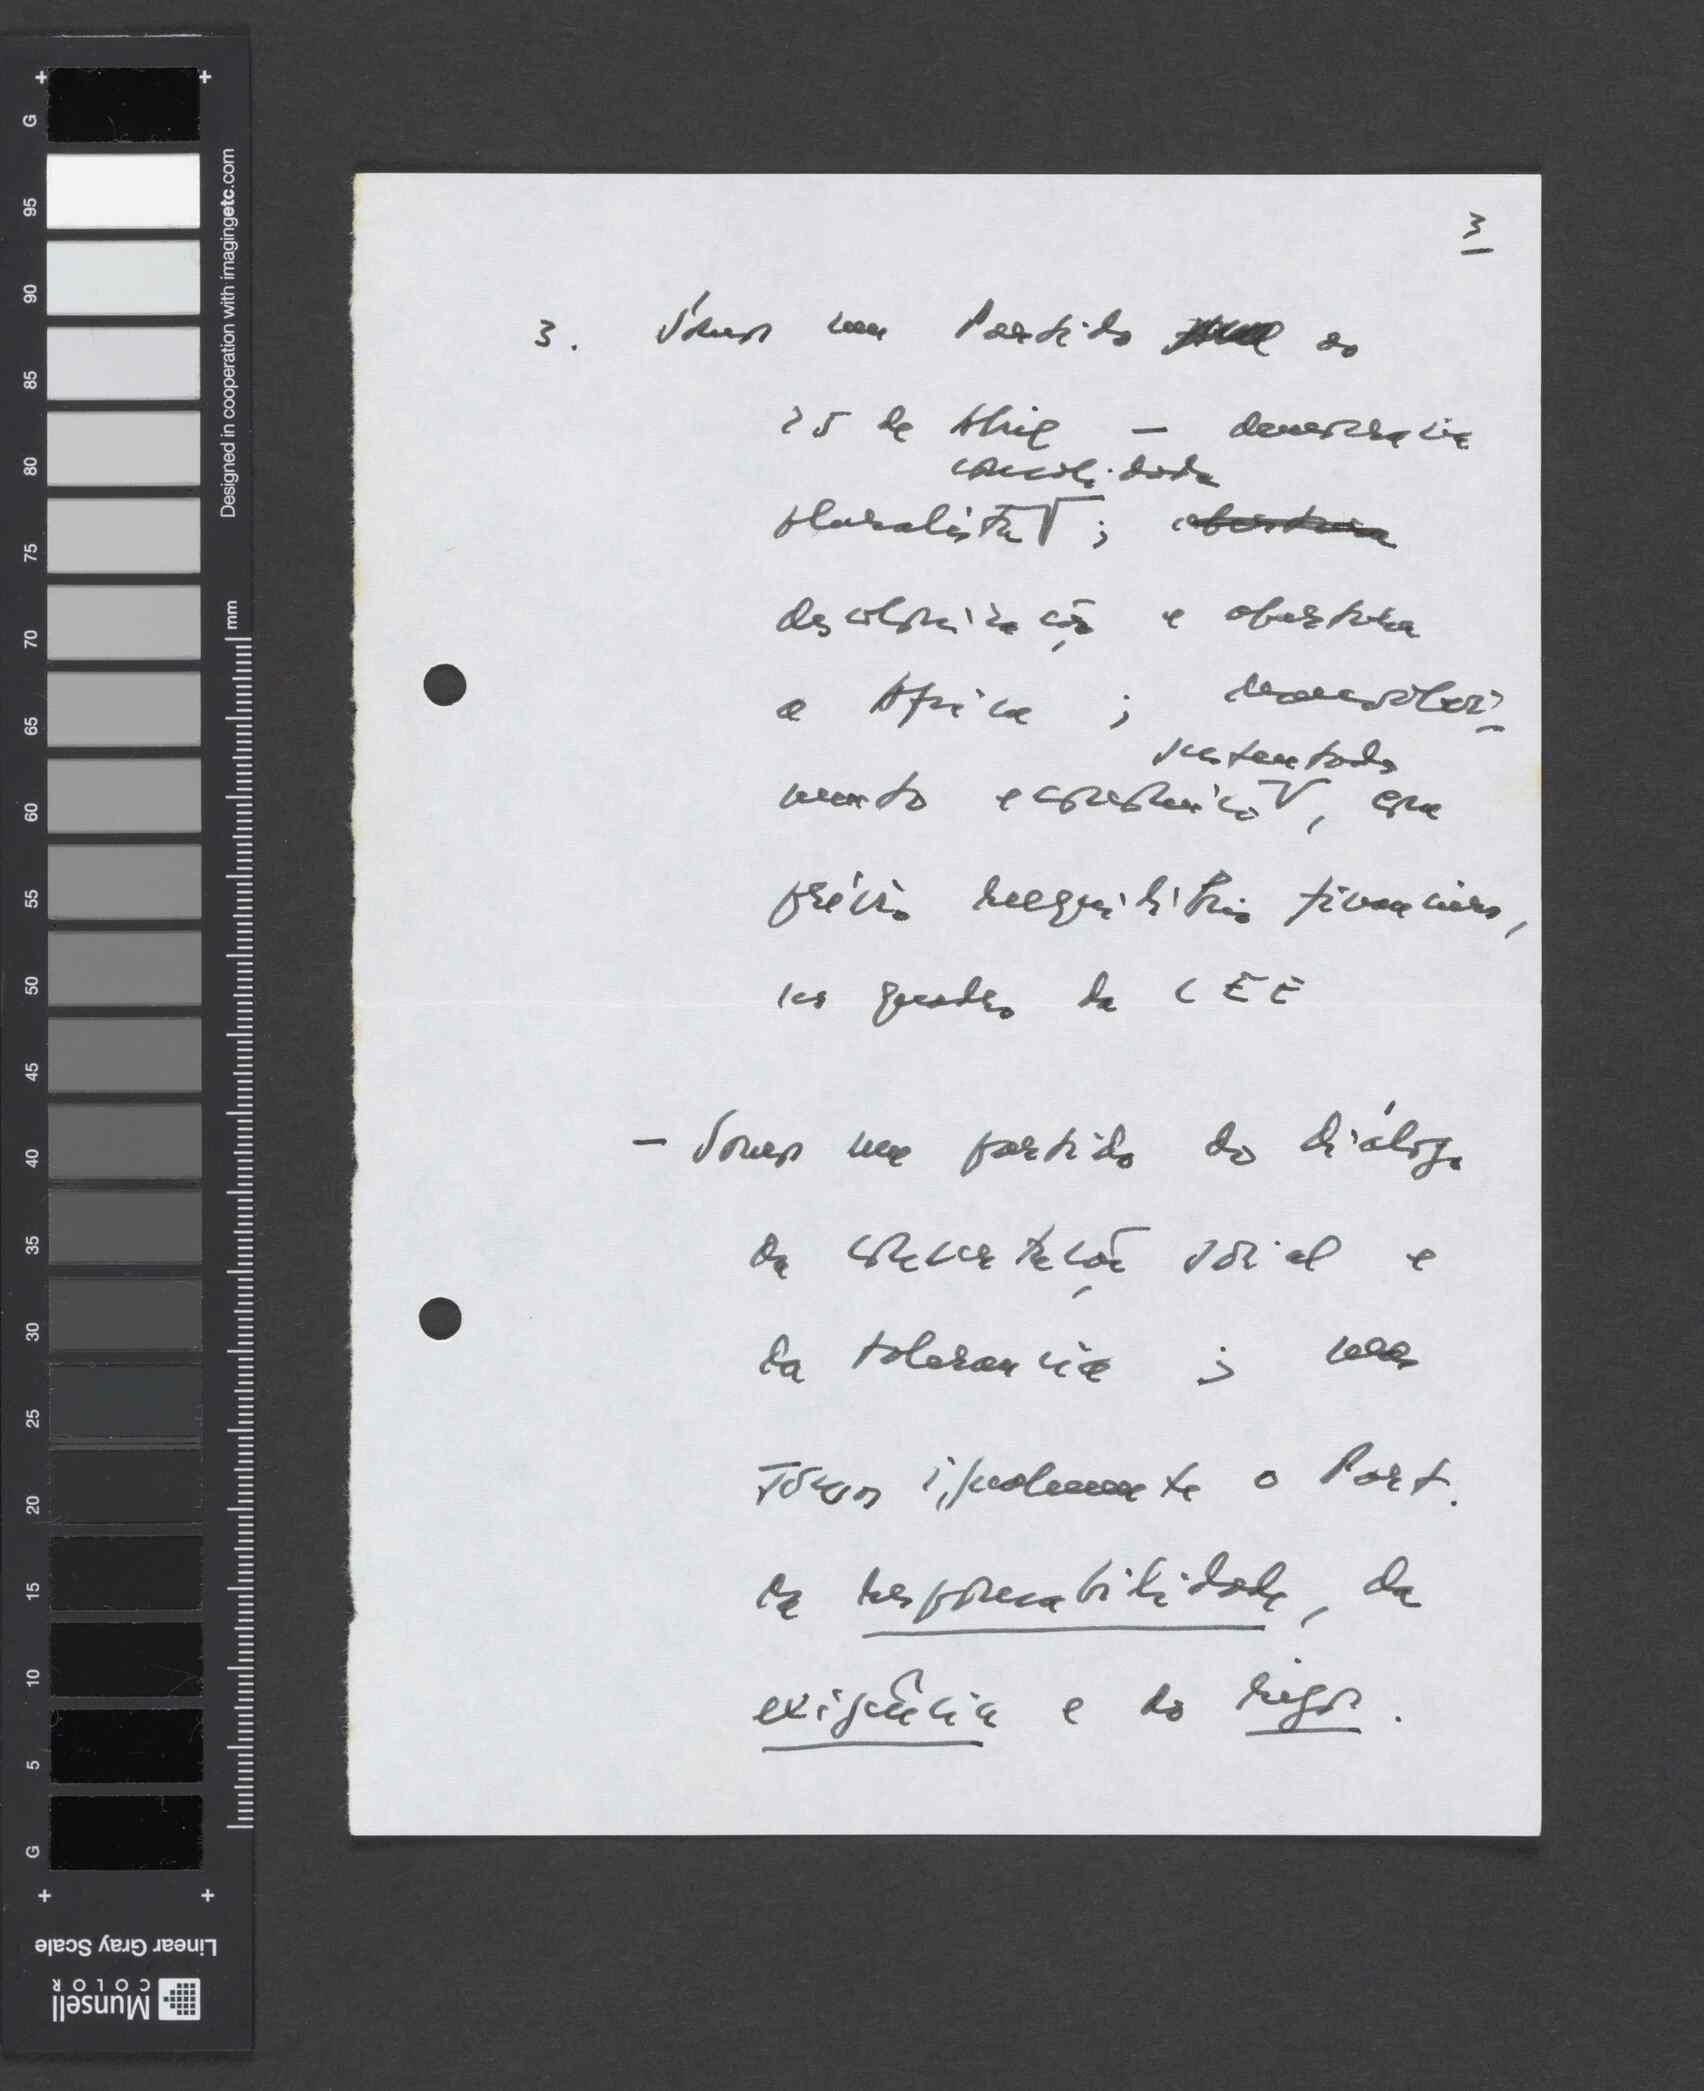 3
3. Somos um Partido do
25 de Abril — democracia
consolidada
pluralista ; abertura
descolonização e abertura
a Africa ; desenvolvi-
sustentado
mento economico , com
prévio reequilibrio financeiro,
no quadro da CEE
— Somos um partido do diálogo
da concertação social e
da tolerancia ; mas
somos igualmente o Part.
da responsabilidade, da
exigência e do rigor.
G
95
90
85
80
75
70
65
60
55
50
45
40
35
30
25
20
15
10
5
G
Designed in cooperation with imagingetc.com
mm
Linear Gray Scale
Munsell
COLOR